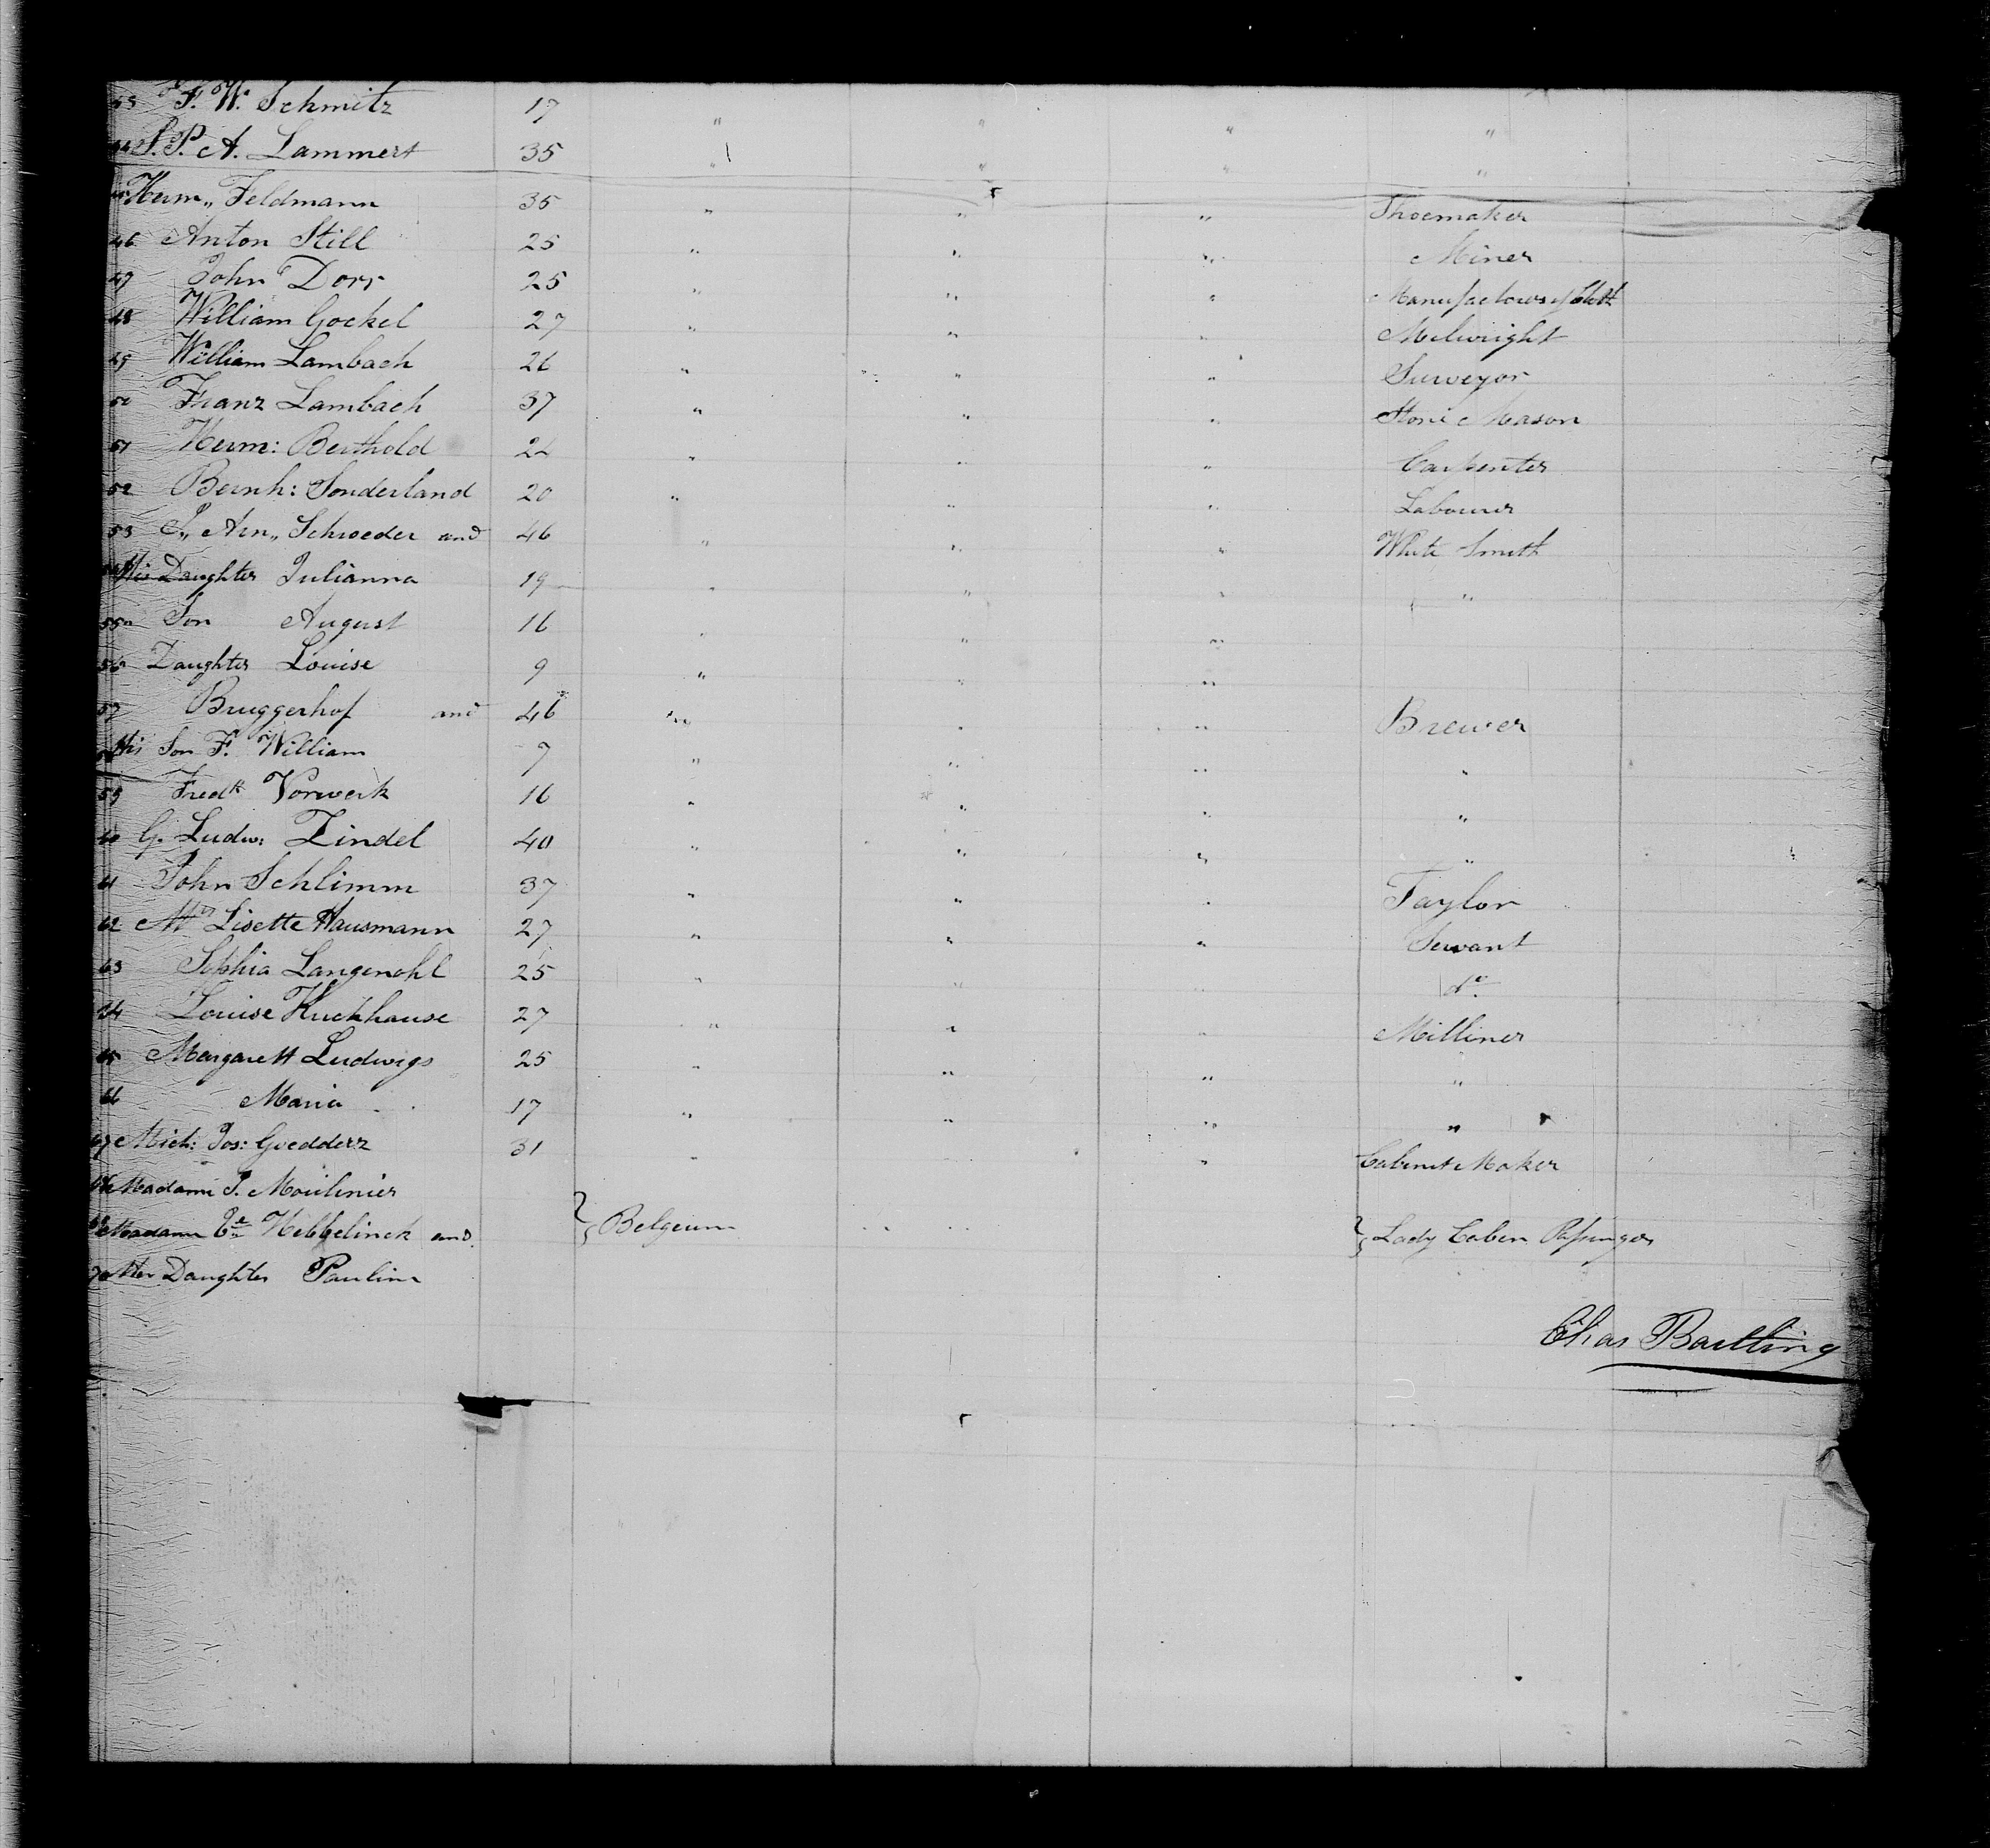 43 F. W. Schmitz 17 " " " "
44 S. P. A. Lammert 35 " " " "
45 Herm,, Feldmann 35 " " " Shoemaker
46 Anton Still 25 " " " Miner
47 John Dorr 25 " " " Manufacturer of Cloth
48 William Gockel 27 " " " Milwright
49 William Lambach 26 " " " Surveyor
50 Franz Lambach 37 " " " Stone Mason
51 Herm: Berthold 22 " " " Carpenter
52 Bernh: Sonderland 20 " " " Labourer
53 P,, Arn,, Schroeder and 46 " " " White Smith
54 His Daughter Julianna 19 " " " "
55 " Son August 16 " " "
56 " Daughter Louise 9 " " "
57 Bruggerhof and 46 " " " Brewer
58 His Son F. William 7 " " " "
59 Fredk Vorwerk 16 " " " "
60 G. Ludw: Zindel 40 " " " "
61 John Schlimm 37 " " " Taylor
62 Mrs Lisette Hausmann 27 " " " Servant
63 Sophia Langenohl 25 " " " do.
64 Louise Kuckhause 27 " " " Milliner
65 Margarett Ludwigs 25 " " " "
66 Maria 17 " " " "
67 Mich: Jos: Goedderz 31 " " " Cabinet Maker
68 Madame P. Moulinier
69 Madame Hebbelinck and } Belgeum " " } Lady Caben Passenger
70 Her Daughter Paulin
Chas Baetling